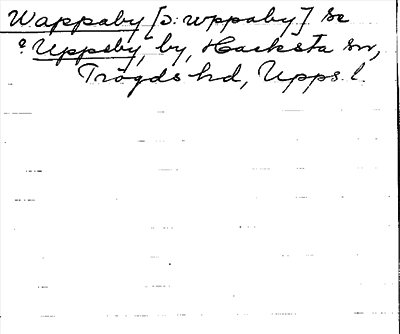 Wappaby [ɔ: wppaby] se
? Uppsby, by, Hacksta sn,
Trögds hd, Upps. l.